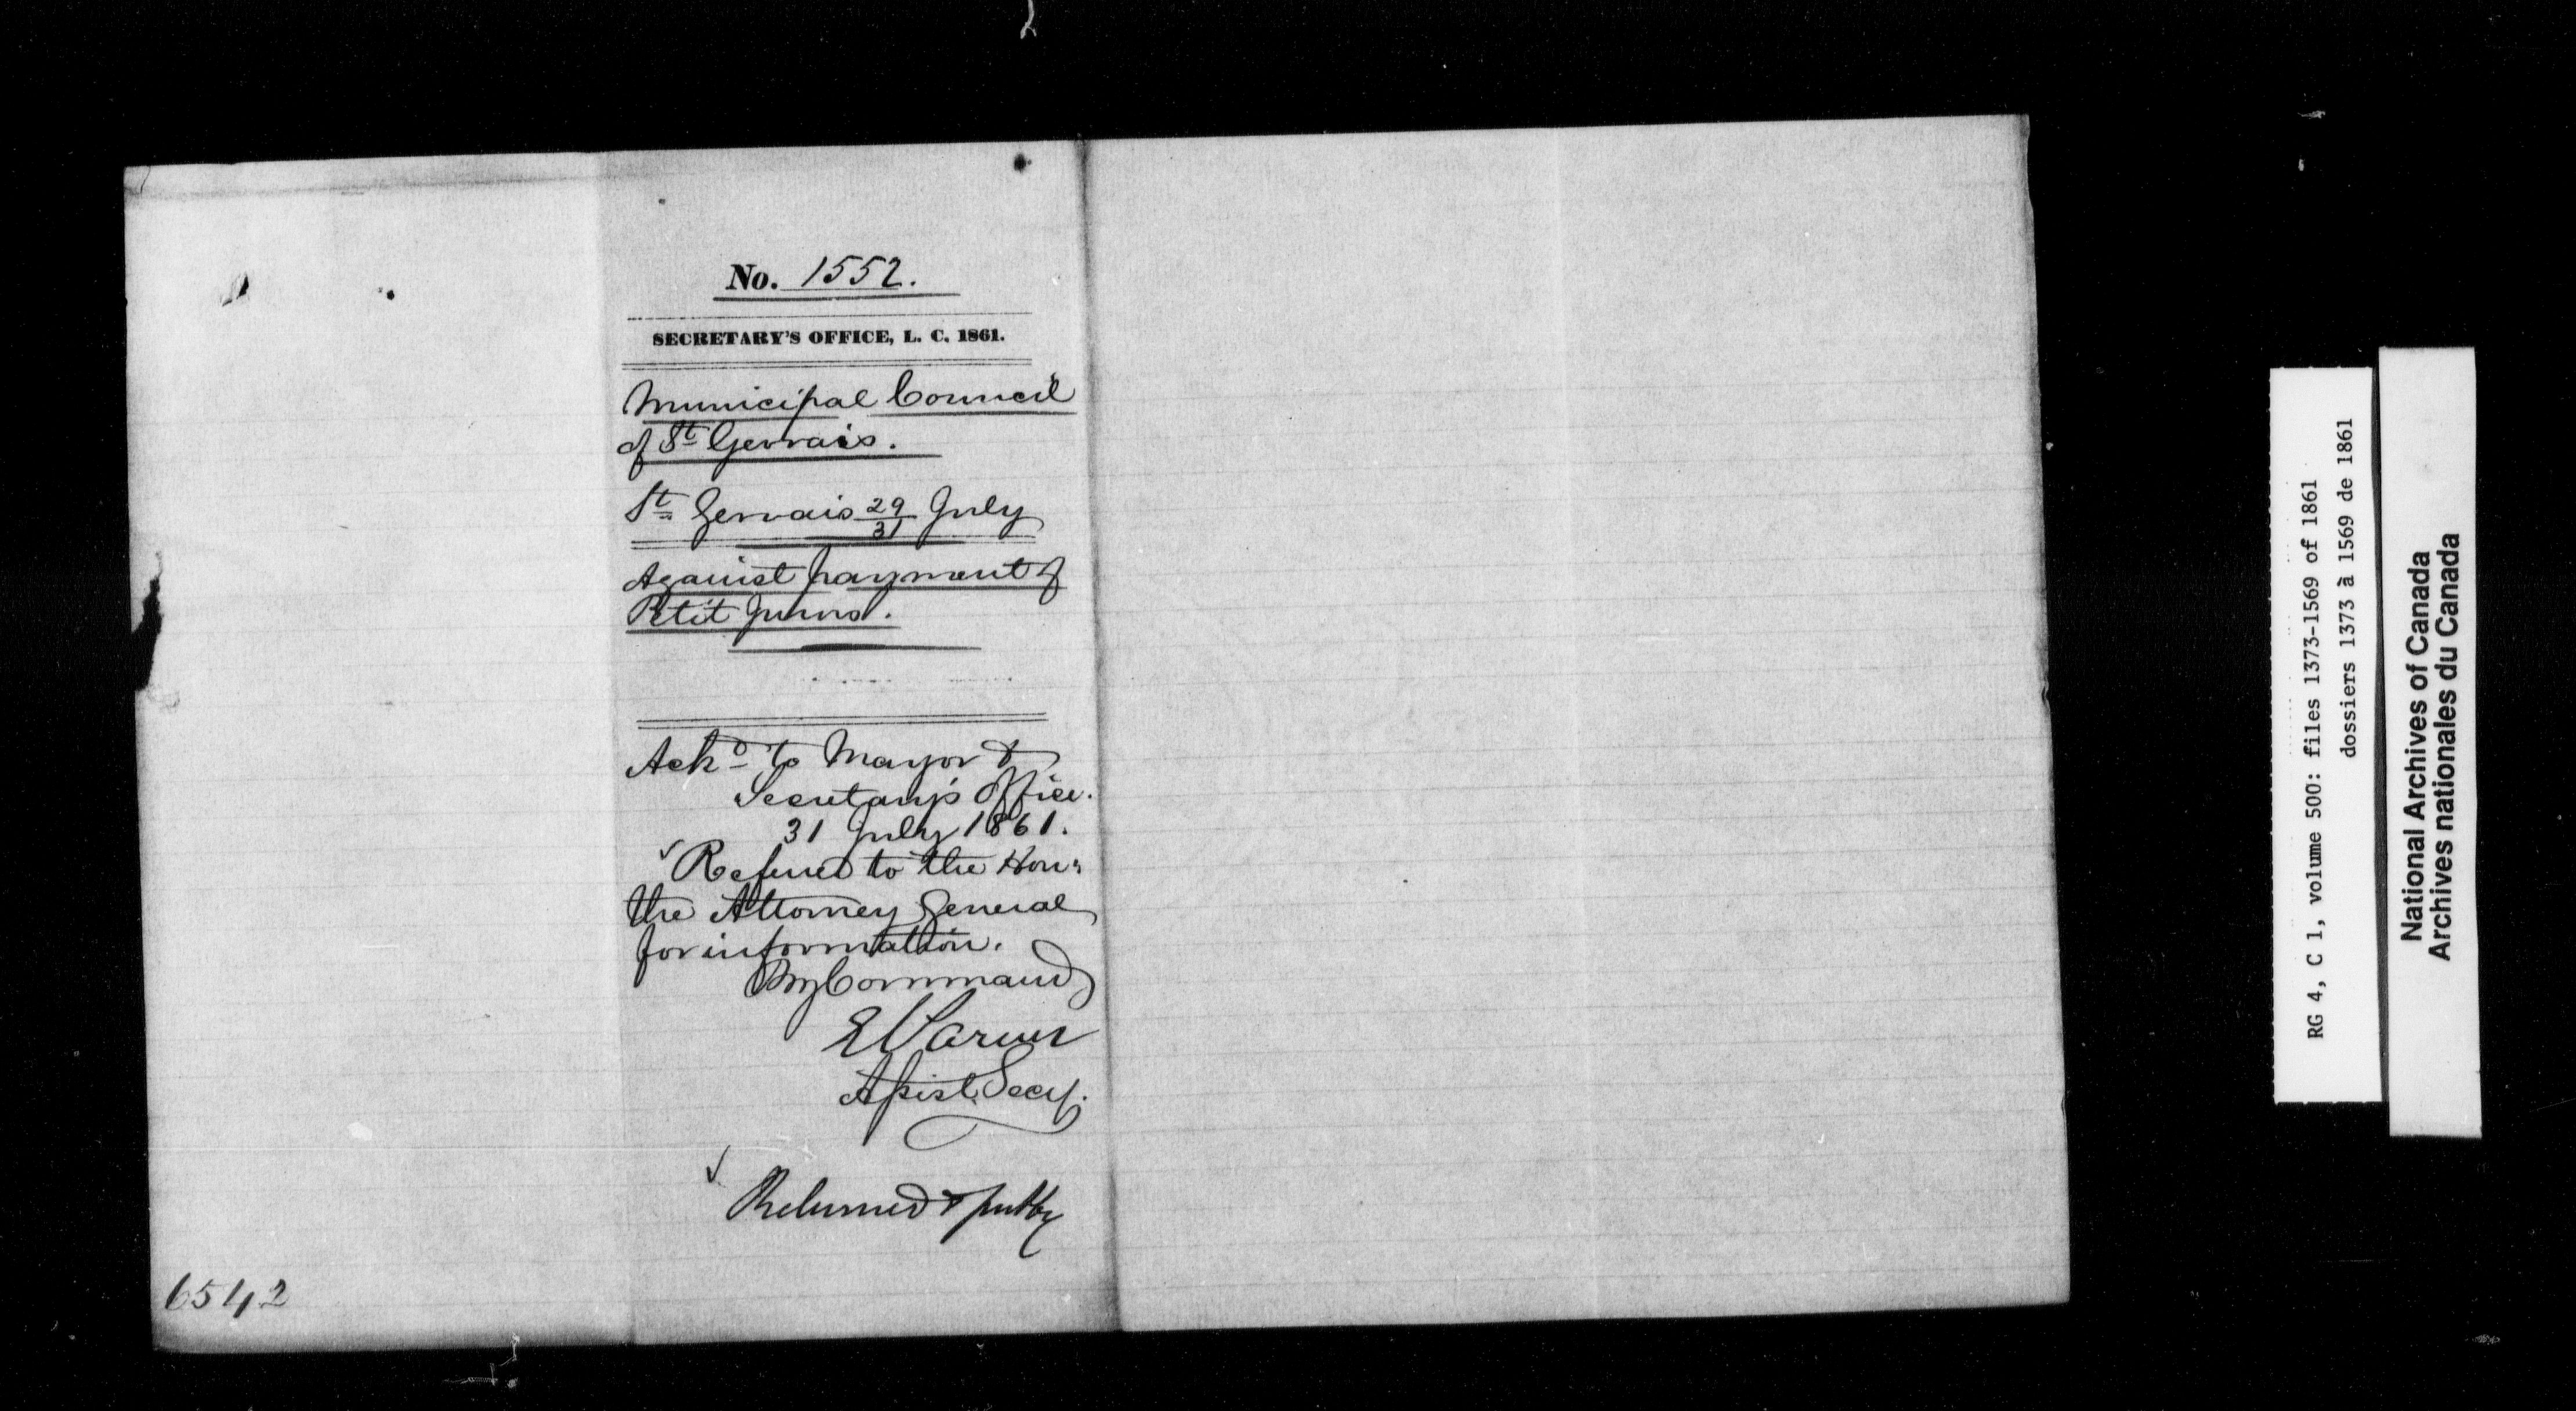 No. 1552.
SECRETARY'S OFFICE, L. C. 1861.
Municipal Council
of St Gervais.
St Gervais 29/31 July
Against payment of
Petit Jurors.
Ackd to Mayor &
Secretary's Office.
31 July 1861.
Referred to the Hon:
the Attorney General
for information.
By Command
E Parent
Assist. Secy.
Returned & put by
6542
RG 4, C 1, volume 500: files 1373-1569 of 1861
dossiers 1373 à 1569 de 1861
National Archives of Canada
Archives nationales du Canada